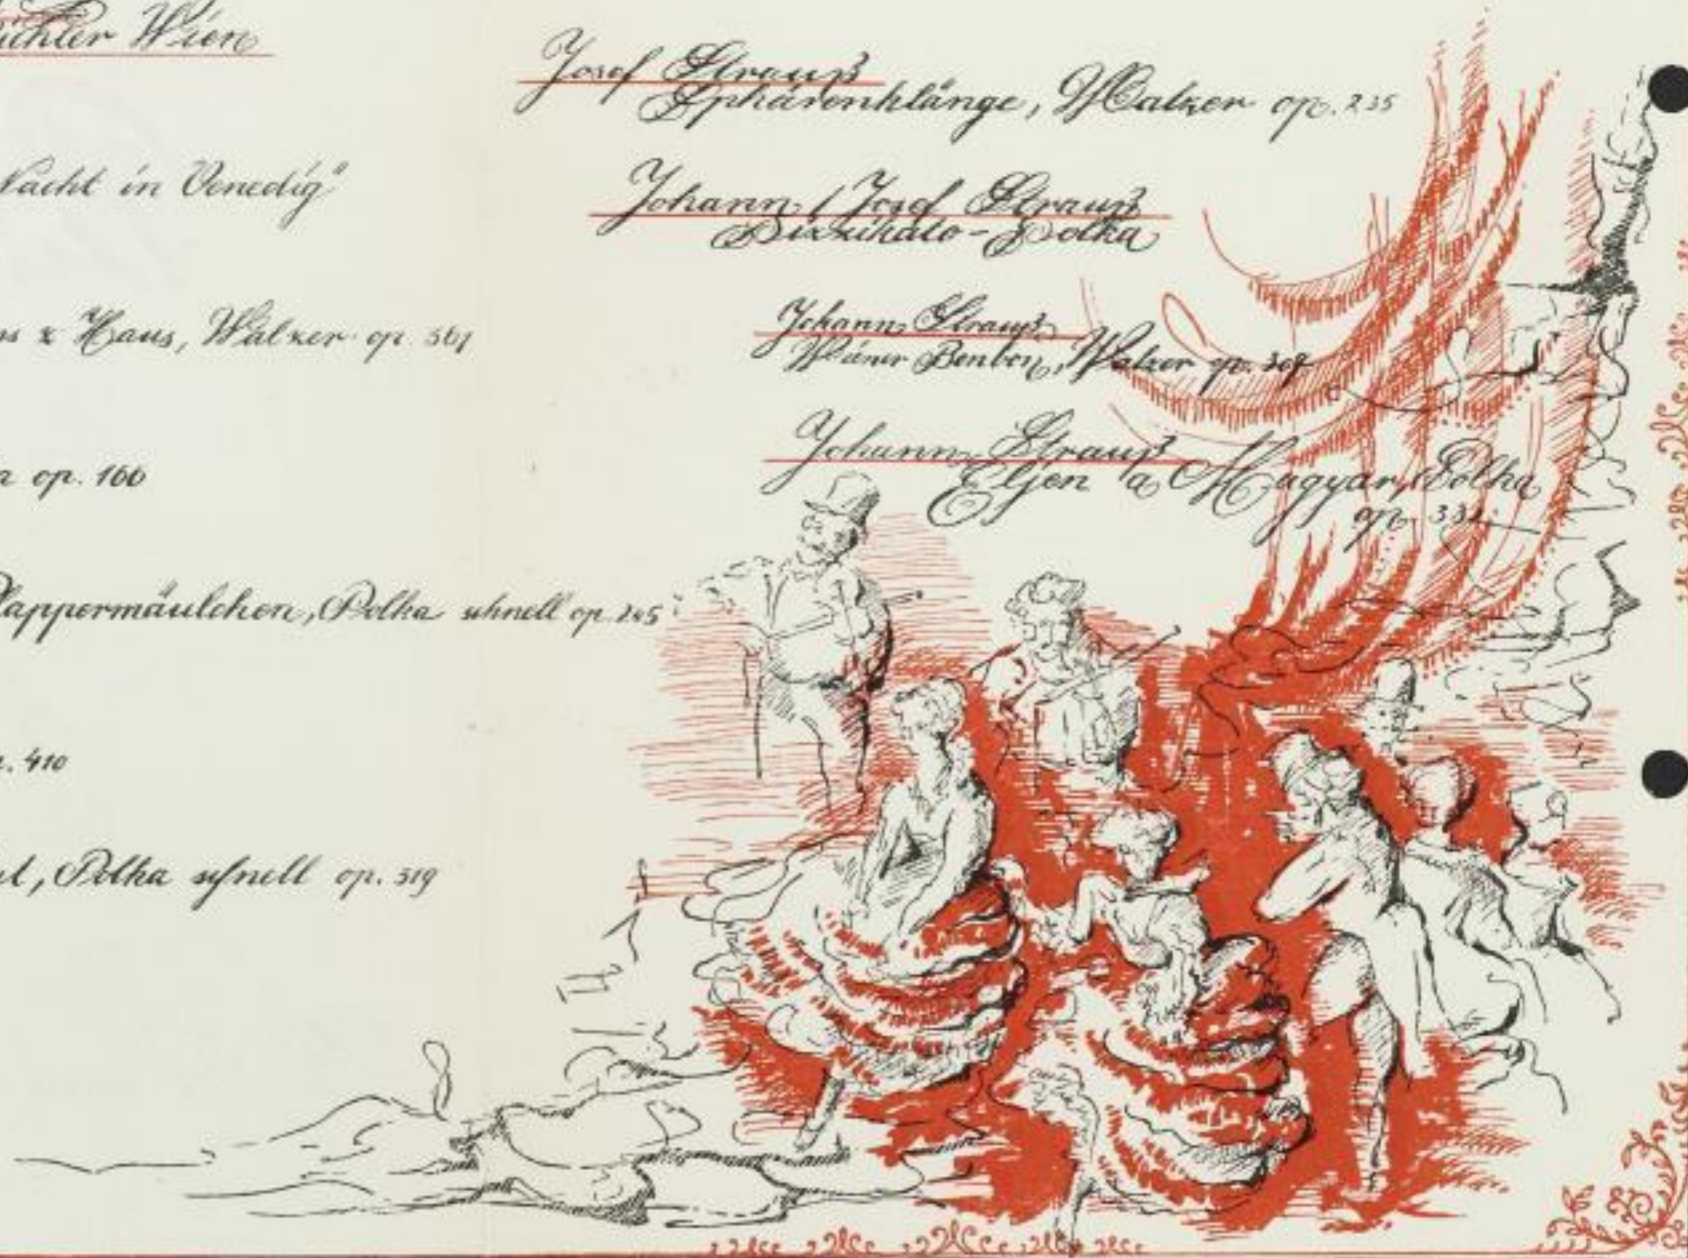 Wien
Nacht in Venedig"
Haus, Walzer op. 361
op. 166
lappermäulchen, Polka schnell op. 245
410
Polka schnell op. 319
Josef Strauß
Sphärenklänge, Walzer op. 235
Johann / Josef Strauß
Pizzikato-Polka
Johann Strauß
Wiener Bonbon, Walzer op. 307
Johann Strauß
Eljen a Magyar, Polka
op. 332